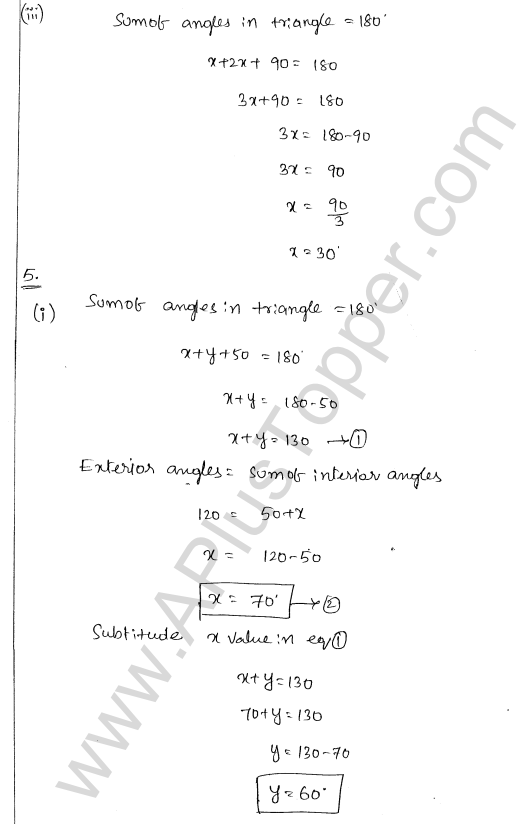 (iii) Sumof angles in triangle = 180°
x+2x+ 90 = 180
3x+90 = 180
3x = 180-90
3x = 90
x = 90/3
x = 30°
5.
(i) Sumof angles in triangle = 180°
x+y+50 = 180°
x+y = 180-50
x+y = 130 → ①
Exterior angles = Sumof interior angles
120 = 50+x
x = 120-50
x = 70° → ②
Subtitude x value in eq ①
x+y = 130
70+y = 130
y = 130-70
y = 60°
www.APlusTopper.com